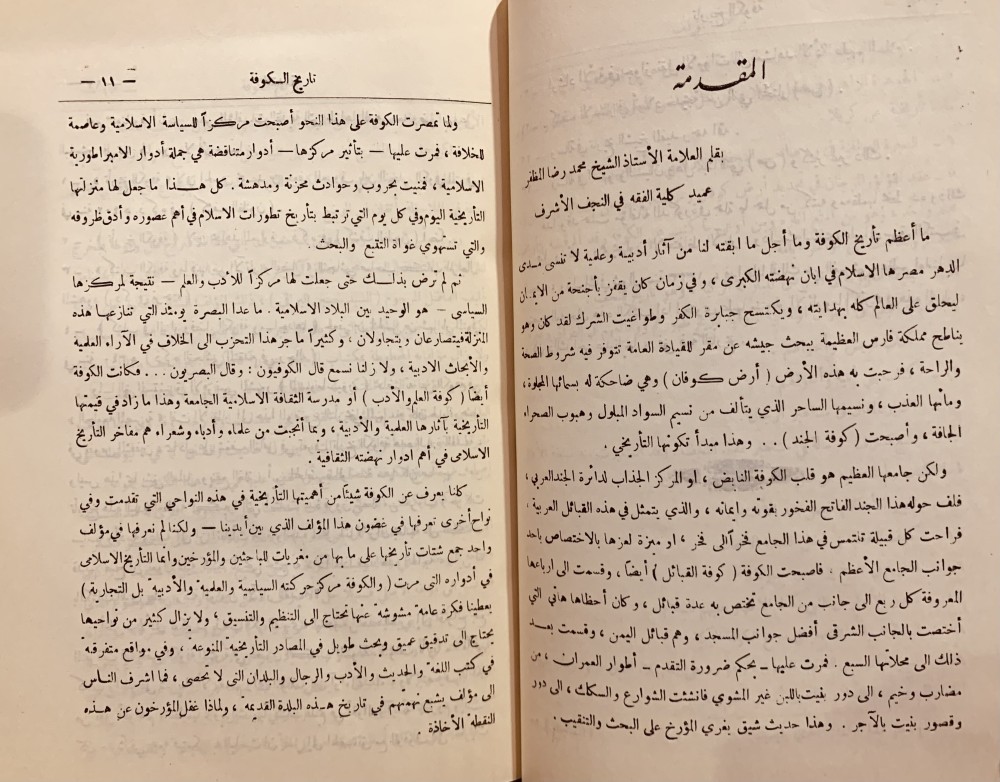 المقدمة
بقلم العلامة الأستاذ الشيخ محمد رضا المظفر
عميد كلية الفقه في النجف الأشرف
ما أعظم تأريخ الكوفة وما أجل ما ابقته لنا من آثار أدبية وعلمية لا تنسى مدى
الدهر مصرها الاسلام في ابان نهضته الكبرى ، وفي زمان كان يقفز بأجنحة من الايمان
ليحلق على العالم كله بهدايته ، ويكتسح جبابرة الكفر وطواغيت الشرك لقد كان وهو
يناطح مملكة فارس العظيمة يبحث جيشه عن مقر للقيادة العامة تتوفر فيه شروط الصحة
والراحة ، فرحبت به هذه الأرض ( أرض كوفان ) وهي ضاحكة له بسمائها المجلوة ،
ومائها العذب ، ونسيمها الساحر الذي يتألف من نسيم السواد المبلول وهبوب الصحراء
الجافة ، وأصبحت ( كوفة الجند ) . . وهذا مبدأ تكونها التأريخي .
ولكن جامعها العظيم هو قلب الكوفة النابض ، او المركز الجذاب لدائرة الجند العربي ،
فلف حوله هذا الجند الفاتح الفخور بقوته وايمانه ، والذي يتمثل في هذه القبائل العربية ،
فراحت كل قبيلة تنتمس في هذا الجامع فخراً الى فخر ، او ميزة لعزها بالاختصاص باحد
جوانب الجامع الأعظم . فاصبحت الكوفة ( كوفة القبائل ) أيضا ، وقسمت الى ارباعها
المعروفة كل ربع الى جانب من الجامع تختص به عدة قبائل ، وكان أحظاها هاني التي
أختصت بالجانب الشرقى أفضل جوانب المسجد ، وهم قبائل اليمن ، وقسمت بعد
ذلك الى محلاتها السبع . فمرت عليها ـ بحكم ضرورة التقدم ـ أطوار العمران ، من
مضارب وخيم ، الى دور بنيت باللبن غير المشوي فانشئت الشوارع والسكك ، الى دور
وقصور بنيت بالآجر . وهذا حديث شيق يغري المؤرخ على البحث والتنقيب .
تاريخ الكوفة — ١١ —
ولما تمصرت الكوفة على هذا النحو أصبحت مركزاً للسياسة الاسلامية وعاصمة
للخلافة ، فمرت عليها — بتأثير مركزها — أدوار متناقضة هي جملة أدوار الامبراطورية
الاسلامية ، فمنيت بحروب وحوادث محزنة ومدهشة . كل هذا ما جعل لها منزلتها
التأريخية اليوم وفي كل يوم التي ترتبط بتأريخ تطورات الاسلام في أهم عصوره وأدق ظروفه
والتي تستهوي غواة التتبع والبحث
ثم لم ترض بذلك حتى جعلت لها مركزاً للأدب والعلم — نتيجة لمركزها
السياسى — هو الوحيد بين البلاد الاسلامية . ما عدا البصرة يومئذ التي تنازعها هذه
المنزلة فيتصارعان ويتجاولان ، وكثيراً ما جر هذا التحزب الى الخلاف في الآراء العلمية
والأبحاث الادبية ، ولا زلنا نسمع قال الكوفيون : وقال البصريون . . . فكانت الكوفة
أيضاً ( كوفة العلم والأدب ) أو مدرسة الثقافة الاسلامية الجامعة وهذا ما زاد في قيمتها
التأريخية بآثارها العلمية والأدبية ، وبما أنجبت من علماء وأدباء وشعراء هم مفاخر التأريخ
الاسلامى في أهم ادوار نهضته الثقافية .
كلنا يعرف عن الكوفة شيئاً من أهميتها التأريخية في هذه النواحي التي تقدمت وفي
نواح أخرى نعرفها في غضون هذا المؤلف الذي بين أيدينا — ولكنا لم نعرفها في مؤلف
واحد جمع شتات تأريخها على ما بها من مغريات للباحثين والمؤرخين وانما التأريخ الاسلامى
في أدواره التى مرت ( والكوفة مركز حركته السياسية والعلمية والأدبية بل التجارية )
يعطينا فكرة عامة مشوشة عنها نحتاج الى التنظيم والتنسيق ، ولا يزال كثير من نواحيها
يحتاج الى تدقيق عميق وبحث طويل في المصادر التأريخية المنوعة ، وفي مواقع متفرقة
في كتب اللغة والحديث والأدب والرجال والبلدان التى لا تحصى ، فما اشرف الناس
الى مؤلف يشبع نهمتهم في تاريخ هذه البلدة القديمة ، ولماذا غفل المؤرخون عن هذه
النقطة الأخاذة .